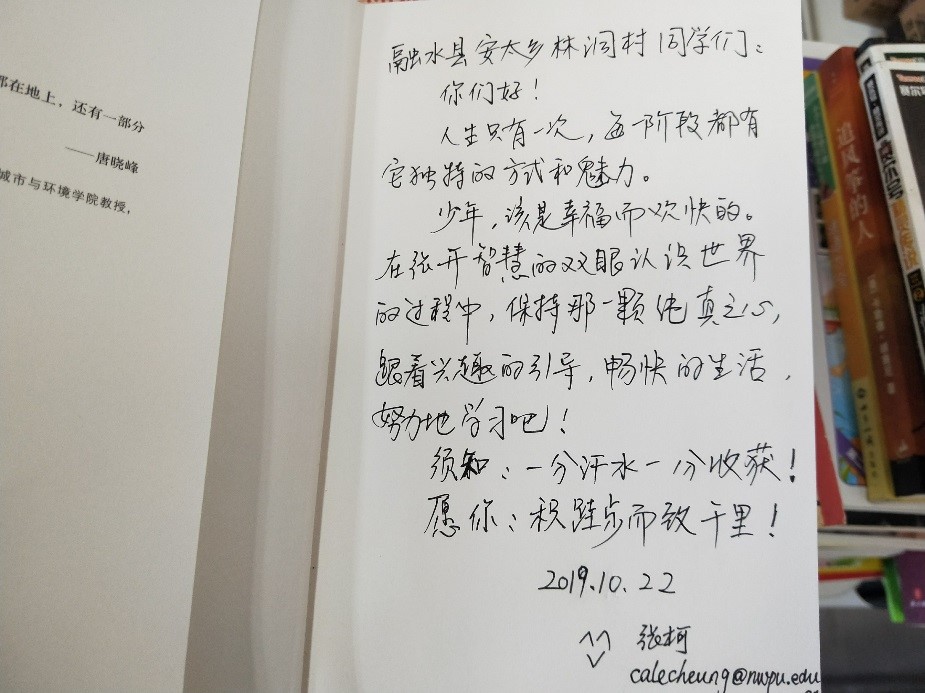 都在地上，还有一部分
——唐晓峰
城市与环境学院教授，
融水县安太乡林洞村同学们：
你们好！
人生只有一次，每一阶段都有
它独特的方式和魅力。
少年，该是幸福而欢快的。
在张开智慧的双眼认识世界
的过程中，保持那一颗纯真之心，
跟着兴趣的引导，畅快的生活，
努力地学习吧！
须知：一分汗水一分收获！
愿你：积跬步而致千里！
2019.10.22
张柯
calecheung@nwpu.edu
追风筝的人